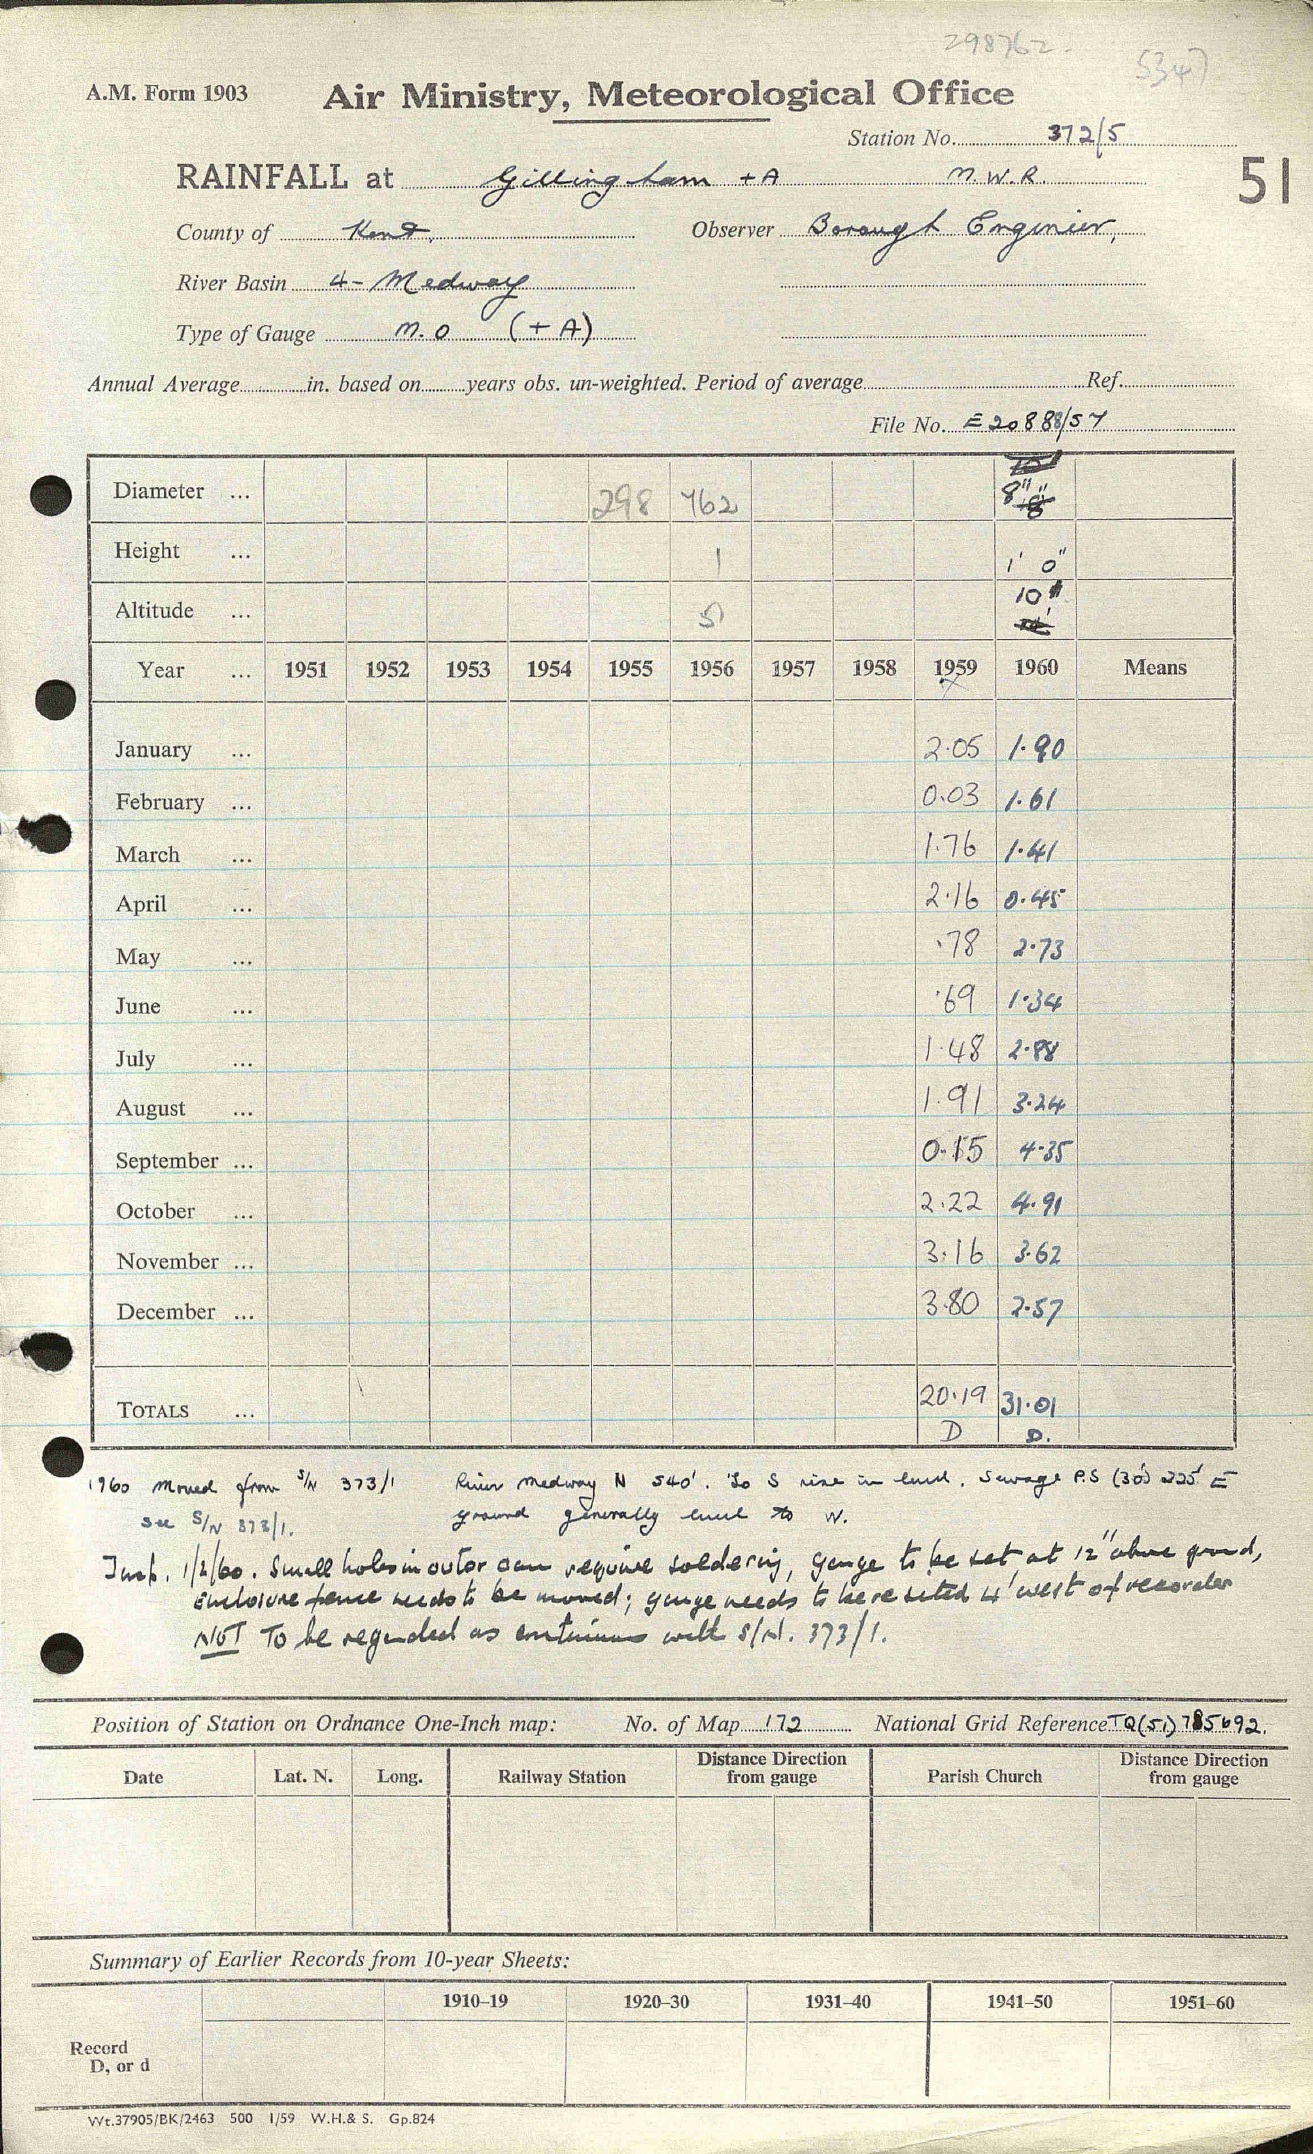 298762.
5347
A.M. Form 1903 Air Ministry, Meteorological Office
Station No. 372/5
RAINFALL at Gillingham +A M.W.R. 51
County of Kent. Observer Borough Engineer,
River Basin 4- Medway
Type of Gauge M.O (+A)
Annual Average in. based on years obs. un-weighted. Period of average Ref.
File No. E20888/57
Diameter ... 298 762 8"
Height ... 1 1' 0"
Altitude ... 51 10
Year ... 1951 1952 1953 1954 1955 1956 1957 1958 1959 1960 Means
January ... 2.05 1.90
February ... 0.03 1.61
March ... 1.76 1.41
April ... 2.16 0.45
May ... .78 2.73
June ... .69 1.34
July ... 1.48 2.88
August ... 1.91 3.24
September ... 0.15 4.35
October ... 2.22 4.91
November ... 3.16 3.62
December ... 3.80 2.57
TOTALS ... 20.19 31.01
D D.
1960 moved from S/N 373/1 River Medway N 540'. To S rise in land. Sewage P.S (30') 225' E
see S/N 373/1. ground generally level to W.
Insp. 1/2/60. Small holes in outer can require soldering, gauge to be set at 12" above ground,
Enclosure fence needs to be moved; gauge needs to be resited 4' west of recorder
NOT To be regarded as continuous with S/N. 373/1.
Position of Station on Ordnance One-Inch map: No. of Map 172 National Grid Reference TQ(51) 785692.
Date Lat. N. Long. Railway Station Distance Direction from gauge Parish Church Distance Direction from gauge
Summary of Earlier Records from 10-year Sheets:
1910–19 1920–30 1931–40 1941–50 1951–60
Record
D, or d
Wt.37905/BK/2463 500 1/59 W.H.& S. Gp.824